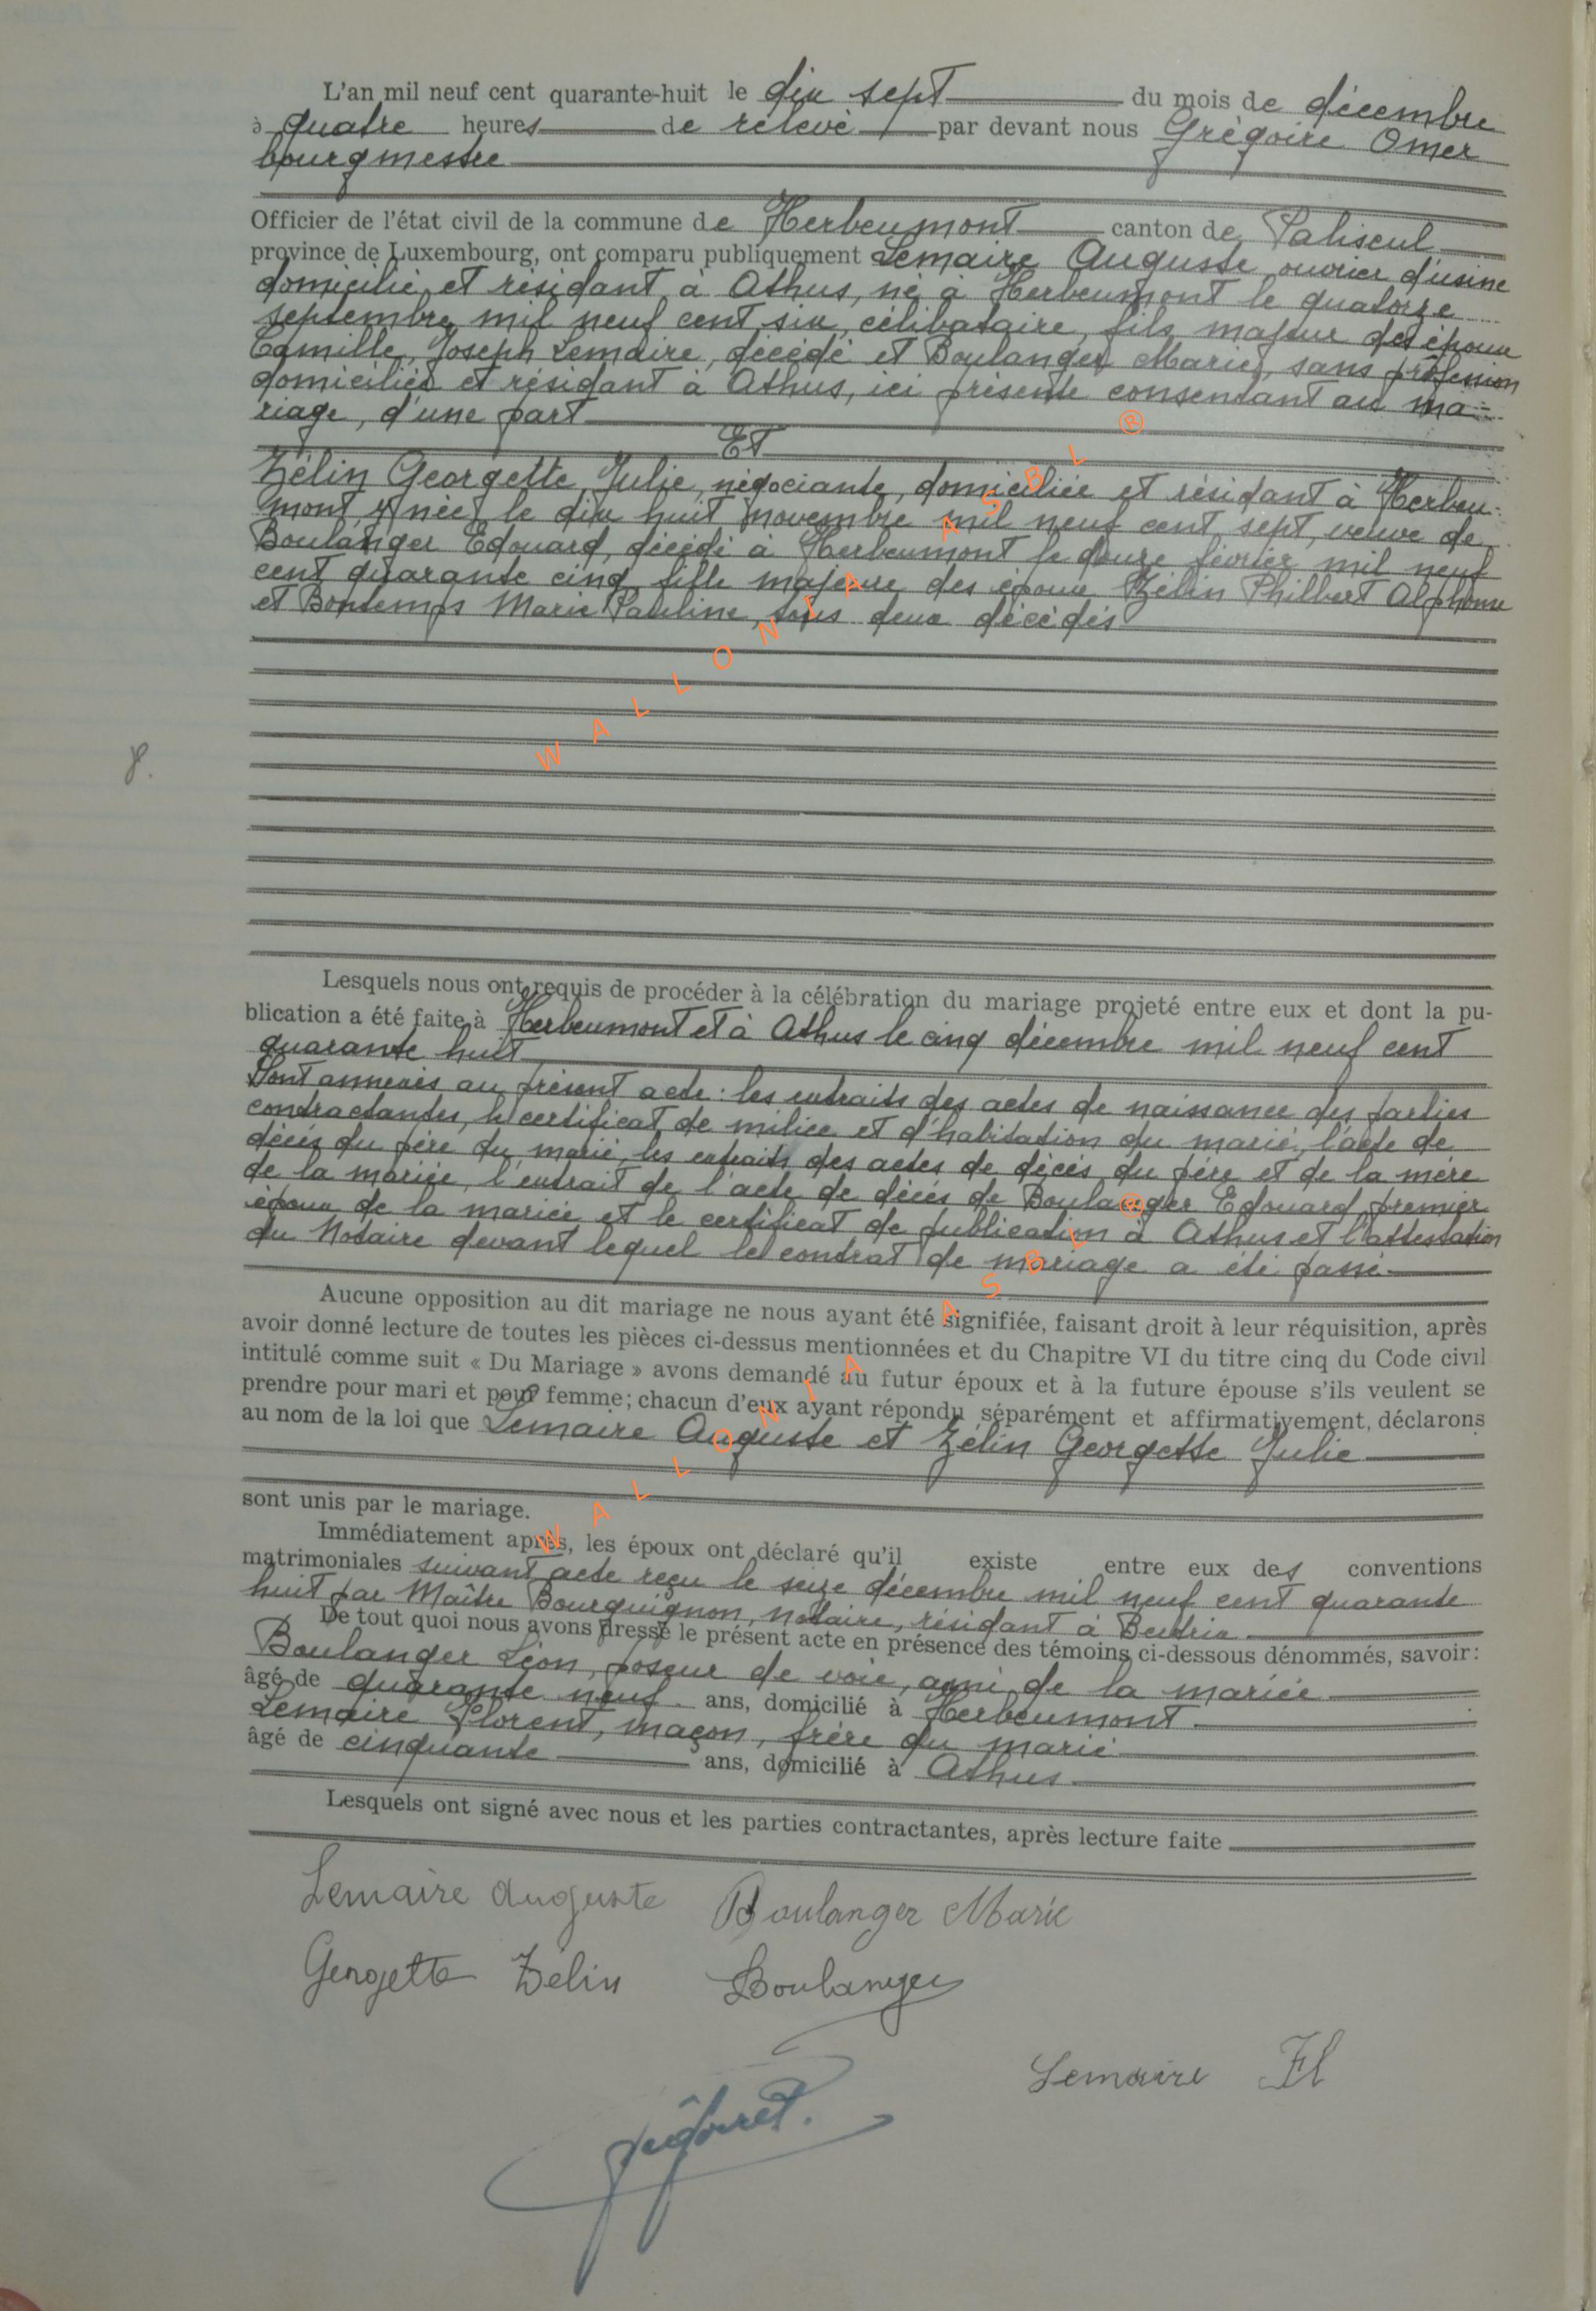 L'an mil neuf cent quarante-huit le dix sept du mois de décembre
à quatre heures de relevé par devant nous Grégoire Omer
bourgmestre
Officier de l'état civil de la commune de Herbeumont canton de Paliseul
province de Luxembourg, ont comparu publiquement Lemaire Auguste ouvrier d'usine
domicilié et résidant à Athus, né à Herbeumont le quatorze
septembre mil neuf cent six, célibataire, fils majeur des époux
Camille, Joseph Lemaire, décédé et Boulanger Marie, sans profession
domiciliés et résidant à Athus, ici présente consentant au ma-
riage, d'une part
Et
Zélin Georgette, Julie, négociante, domiciliée et résidant à Herbeu-
mont y née le dix huit novembre mil neuf cent sept, veuve de
Boulanger Edouard, décédé à Herbeumont le douze février mil neuf
cent quarante cinq, fille majeure des époux Zélin Philbert Alphonse
et Bontemps Marie Pauline, tous deux décédés
8.
Lesquels nous ont requis de procéder à la célébration du mariage projeté entre eux et dont la pu-
blication a été faite à Herbeumont et à Athus le cinq décembre mil neuf cent
quarante huit
Sont annexés au présent acte : les extraits des actes de naissance des parties
contractantes, le certificat de milice et d'habitation du marié, l'acte de
décès du père du marié, les extraits des actes de décès du père et de la mère
de la mariée, l'extrait de l'acte de décès de Boulanger Edouard, premier
époux de la mariée et le certificat de publication à Athus et l'attestation
du Notaire devant lequel le contrat de mariage a été passé
Aucune opposition au dit mariage ne nous ayant été signifiée, faisant droit à leur réquisition, après
avoir donné lecture de toutes les pièces ci-dessus mentionnées et du Chapitre VI du titre cinq du Code civil
intitulé comme suit « Du Mariage » avons demandé au futur époux et à la future épouse s'ils veulent se
prendre pour mari et pour femme ; chacun d'eux ayant répondu séparément et affirmativement, déclarons
au nom de la loi que Lemaire Auguste et Zélin Georgette Julie
sont unis par le mariage.
Immédiatement après, les époux ont déclaré qu'il existe entre eux des conventions
matrimoniales suivant acte reçu le seize décembre mil neuf cent quarante
huit par Maître Bourguignon, notaire, résidant à Bertrix
De tout quoi nous avons dressé le présent acte en présence des témoins ci-dessous dénommés, savoir :
Boulanger Léon, poseur de voie, ami de la mariée
âgé de quarante neuf ans, domicilié à Herbeumont
Lemaire Florent, maçon, frère du marié
âgé de cinquante ans, domicilié à Athus
Lesquels ont signé avec nous et les parties contractantes, après lecture faite
Lemaire Auguste Boulanger Marie
Georgette Zélin Boulanger
Lemaire Fl
WALLONIA ASBL ®
WALLONIA ASBL ®